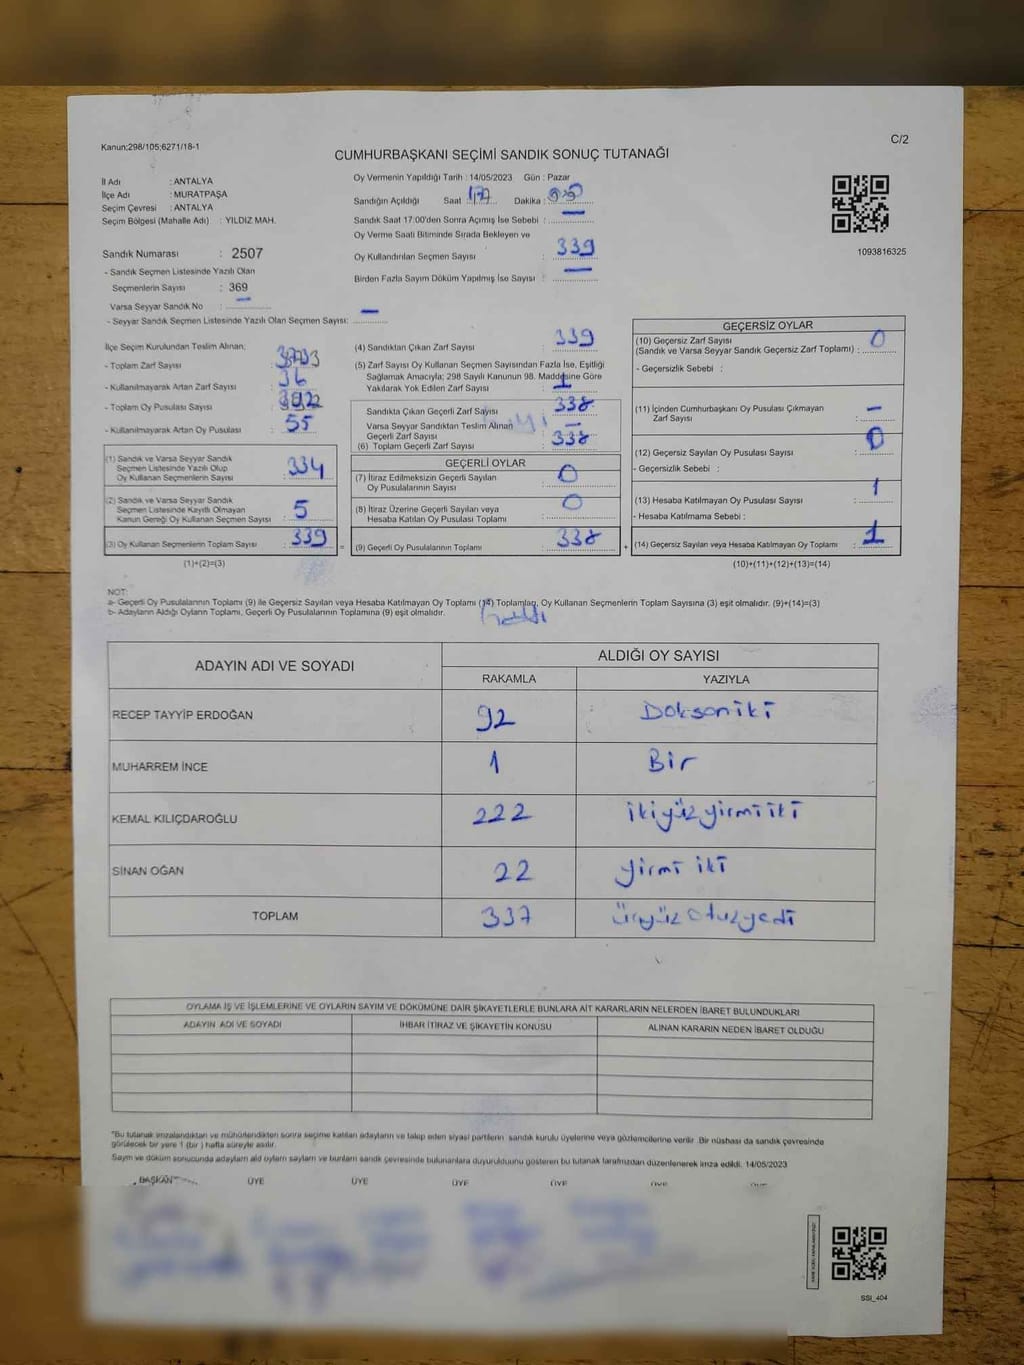 Kanun:298/105;6271/18-1
C/2
CUMHURBAŞKANI SEÇİMİ SANDIK SONUÇ TUTANAĞI
İl Adı : ANTALYA
İlçe Adı : MURATPAŞA
Seçim Çevresi : ANTALYA
Seçim Bölgesi (Mahalle Adı) : YILDIZ MAH.
Oy Vermenin Yapıldığı Tarih : 14/05/2023 Gün : Pazar
Sandığın Açıldığı Saat Dakika :
Sandık Saat 17:00'den Sonra Açımış İse Sebebi : —
Oy Verme Saati Bitiminde Sırada Bekleyen ve
Oy Kullandırılan Seçmen Sayısı : 339
Birden Fazla Sayım Döküm Yapılmış İse Sayısı : —
1093816325
Sandık Numarası : 2507
- Sandık Seçmen Listesinde Yazılı Olan
Seçmenlerin Sayısı : 369
Varsa Seyyar Sandık No : —
- Seyyar Sandık Seçmen Listesinde Yazılı Olan Seçmen Sayısı: —
İlçe Seçim Kurulundan Teslim Alınan;
- Toplam Zarf Sayısı :
- Kullanılmayarak Artan Zarf Sayısı : 36
- Toplam Oy Pusulası Sayısı :
- Kullanılmayarak Artan Oy Pusulası : 55
(1) Sandık ve Varsa Seyyar Sandık
Seçmen Listesinde Yazılı Olup
Oy Kullanan Seçmenlerin Sayısı : 334
(2) Sandık ve Varsa Seyyar Sandık
Seçmen Listesinde Kayıtlı Olmayan
Kanun Gereği Oy Kullanan Seçmen Sayısı : 5
(3) Oy Kullanan Seçmenlerin Toplam Sayısı : 339
(1)+(2)=(3)
(4) Sandıktan Çıkan Zarf Sayısı : 339
(5) Zarf Sayısı Oy Kullanan Seçmen Sayısından Fazla İse, Eşitliği
Sağlamak Amacıyla; 298 Sayılı Kanunun 98. Maddesine Göre
Yakılarak Yok Edilen Zarf Sayısı : 1
Sandıkta Çıkan Geçerli Zarf Sayısı : 338
Varsa Seyyar Sandıktan Teslim Alınan
Geçerli Zarf Sayısı : —
(6) Toplam Geçerli Zarf Sayısı : 338
GEÇERLİ OYLAR
(7) İtiraz Edilmeksizin Geçerli Sayılan
Oy Pusulalarının Sayısı : 0
(8) İtiraz Üzerine Geçerli Sayılan veya
Hesaba Katılan Oy Pusulası Toplamı : 0
= (9) Geçerli Oy Pusulalarının Toplamı : 338 +
GEÇERSİZ OYLAR
(10) Geçersiz Zarf Sayısı
(Sandık ve Varsa Seyyar Sandık Geçersiz Zarf Toplamı) : 0
- Geçersizlik Sebebi :
(11) İçinden Cumhurbaşkanı Oy Pusulası Çıkmayan
Zarf Sayısı : —
(12) Geçersiz Sayılan Oy Pusulası Sayısı : 0
- Geçersizlik Sebebi :
(13) Hesaba Katılmayan Oy Pusulası Sayısı : 1
- Hesaba Katılmama Sebebi :
(14) Geçersiz Sayılan veya Hesaba Katılmayan Oy Toplamı : 1
(10)+(11)+(12)+(13)=(14)
NOT:
a- Geçerli Oy Pusulalarının Toplamı (9) ile Geçersiz Sayılan veya Hesaba Katılmayan Oy Toplamı (14) Toplamları, Oy Kullanan Seçmenlerin Toplam Sayısına (3) eşit olmalıdır. (9)+(14)=(3)
b- Adayların Aldığı Oyların Toplamı, Geçerli Oy Pusulalarının Toplamına (9) eşit olmalıdır.
ADAYIN ADI VE SOYADI ALDIĞI OY SAYISI
RAKAMLA YAZIYLA
RECEP TAYYİP ERDOĞAN 92 Doksaniki
MUHARREM İNCE 1 Bir
KEMAL KILIÇDAROĞLU 222 ikiyüzyirmiiki
SİNAN OĞAN 22 yirmi iki
TOPLAM 337 üçyüzotuzyedi
OYLAMA İŞ VE İŞLEMLERİNE VE OYLARIN SAYIM VE DÖKÜMÜNE DAİR ŞİKAYETLERLE BUNLARA AİT KARARLARIN NELERDEN İBARET BULUNDUKLARI
ADAYIN ADI VE SOYADI İHBAR İTİRAZ VE ŞİKAYETİN KONUSU ALINAN KARARIN NEDEN İBARET OLDUĞU
*Bu tutanak imzalandıktan ve mühürlendikten sonra seçime katılan adayların ve talep eden siyasi partilerin sandık kurulu üyelerine veya gözlemcilerine verilir. Bir nüshası da sandık çevresinde
görülecek bir yere 1 (bir) hafta süreyle asılır.
Sayım ve döküm sonucunda adayların aldığı oyların sayıları ve bunların sandık çevresinde bulunanlara duyurulduğunu gösteren bu tutanak tarafımızdan düzenlenerek imza edildi. 14/05/2023
BAŞKAN ÜYE ÜYE ÜYE ÜYE
SSI_404